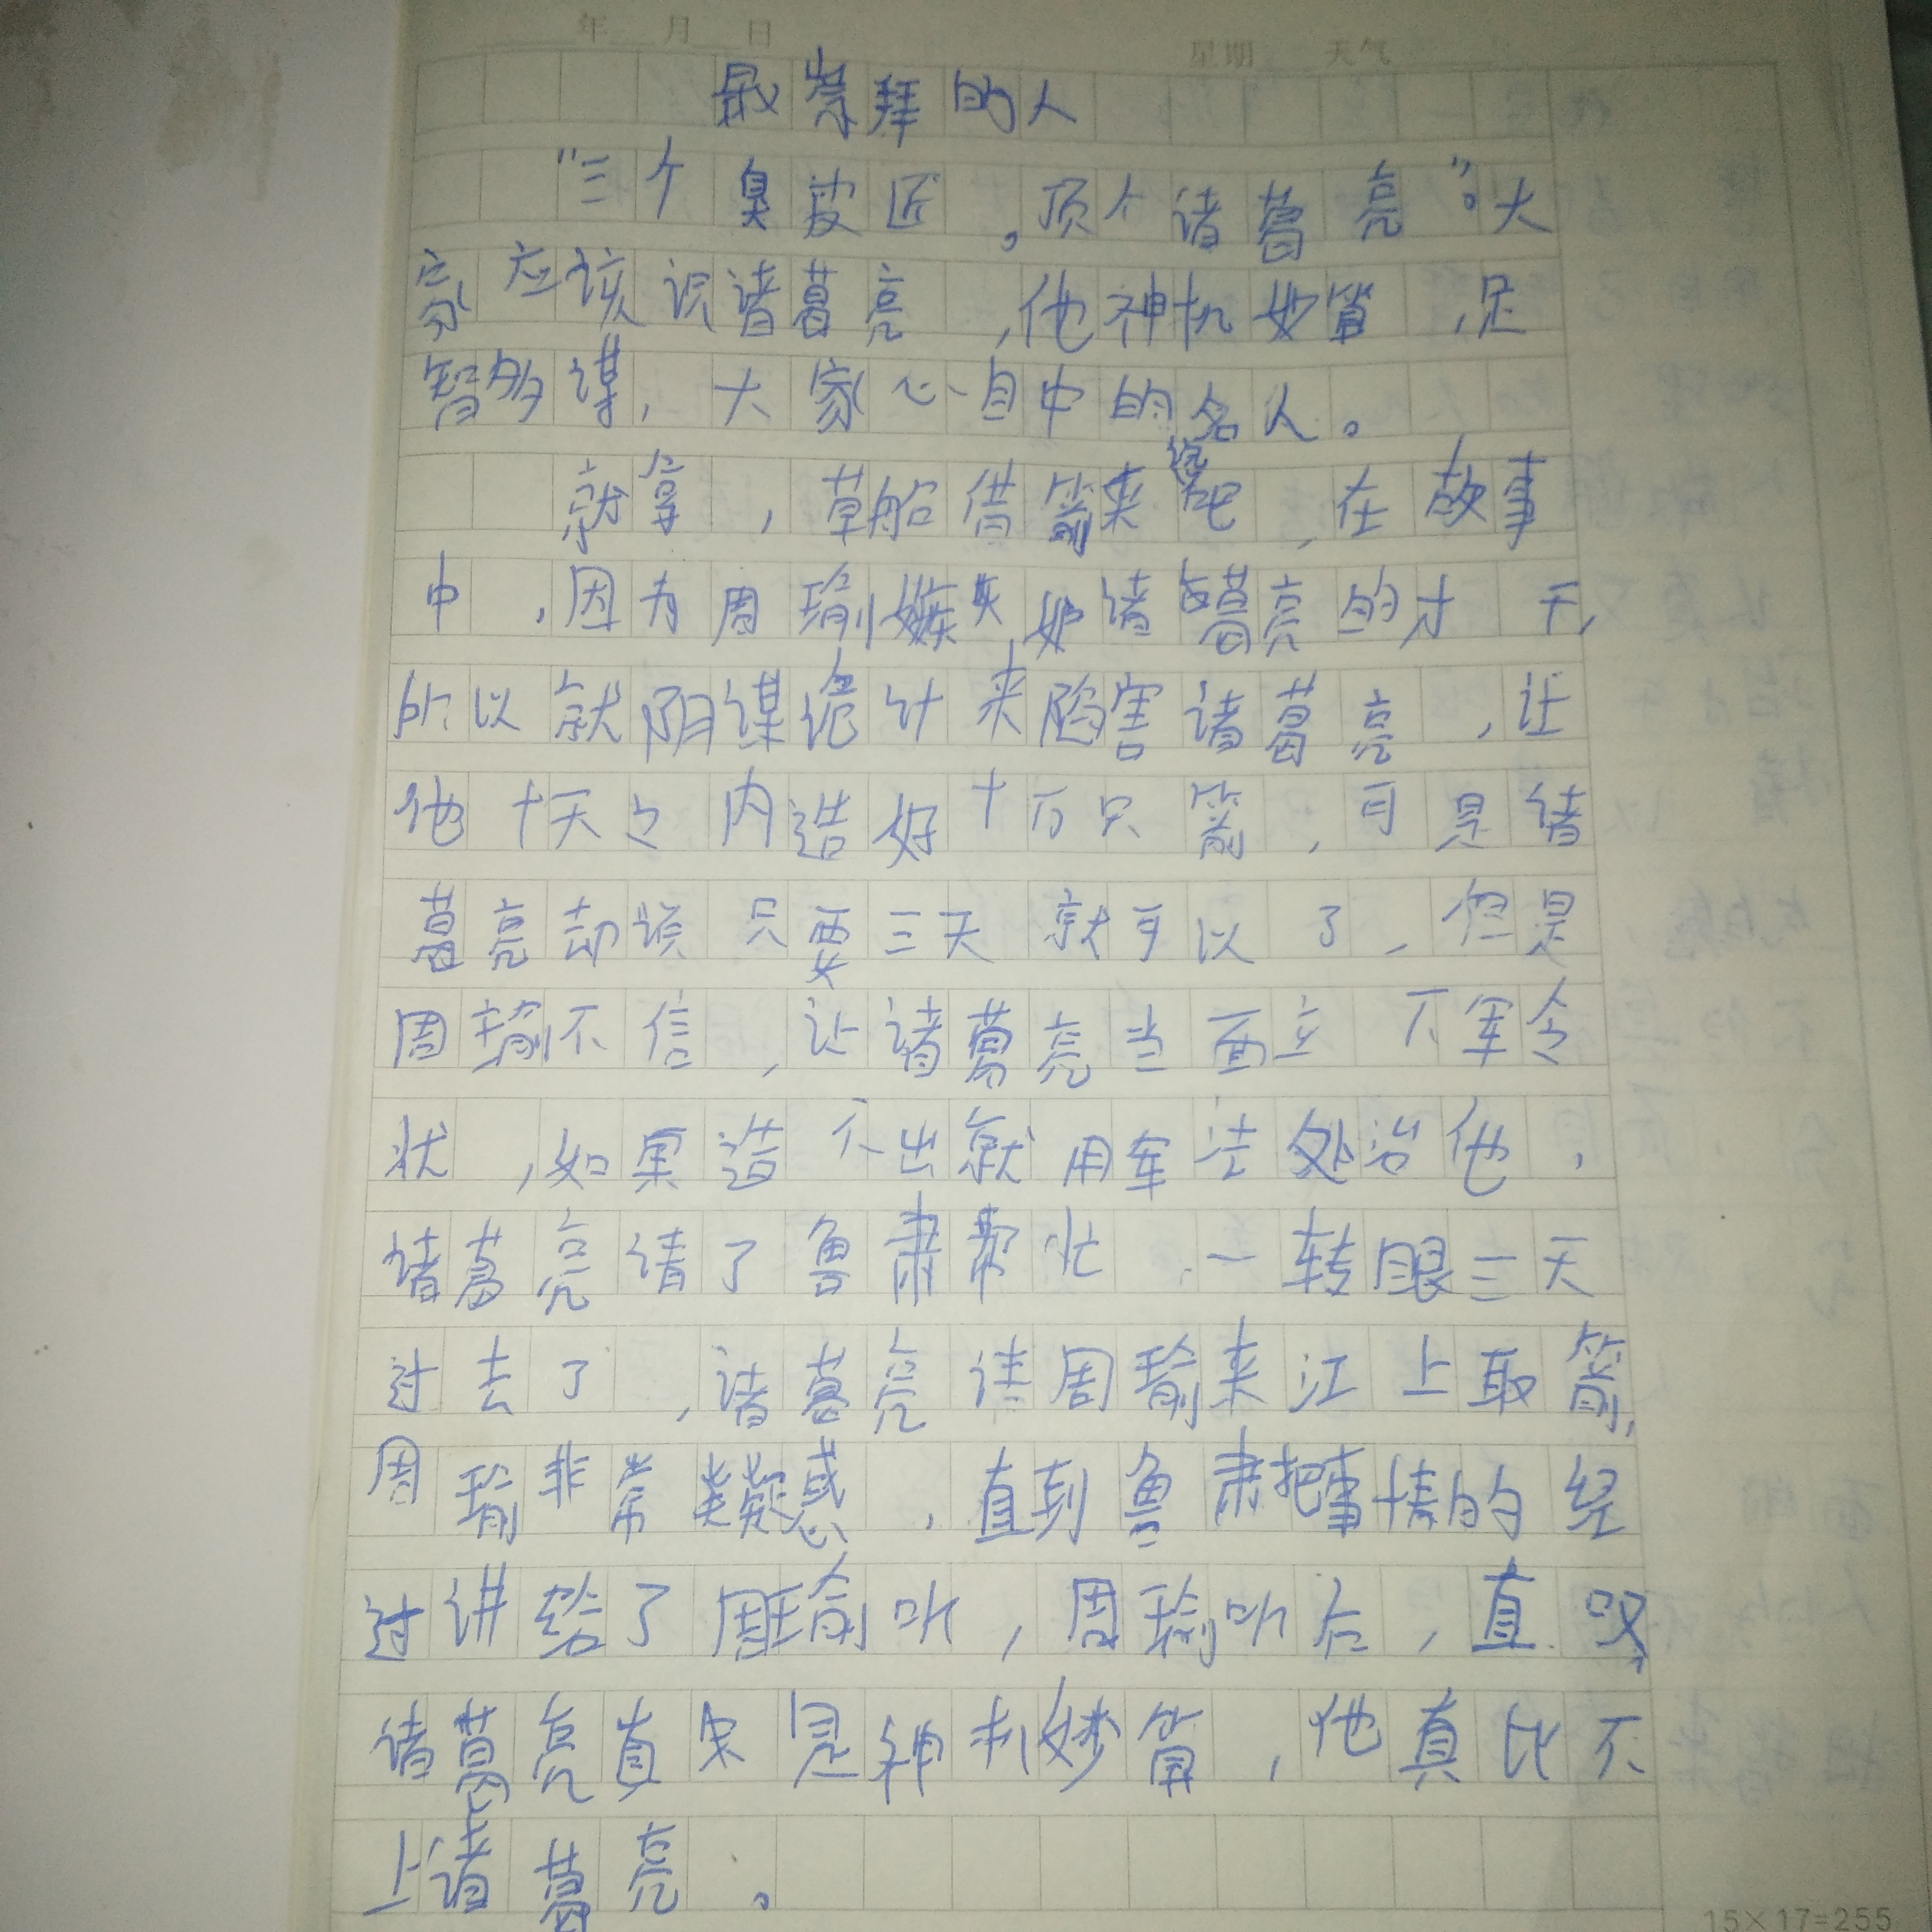 年 月 日 星期 天气
最崇拜的人
“三个臭皮匠，顶个诸葛亮”。大
家应该识诸葛亮，他神机妙算，足
智多谋，大家心目中的名人。
就拿，草船借箭来说吧，在故事
中，因为周瑜嫉妒诸葛亮的才干，
所以就阴谋诡计来陷害诸葛亮，让
他十天之内造好十万只箭，可是诸
葛亮却说只要三天就可以了，但是
周瑜不信，让诸葛亮当面立下军令
状，如果造不出就用军法处治他，
诸葛亮请了鲁肃帮忙，一转眼三天
过去了，诸葛亮请周瑜来江上取箭，
周瑜非常疑惑，直到鲁肃把事情的经
过讲给了周瑜听，周瑜听后，直叹，
诸葛亮真实是神机妙算，他真比不
上诸葛亮。
15×17=255